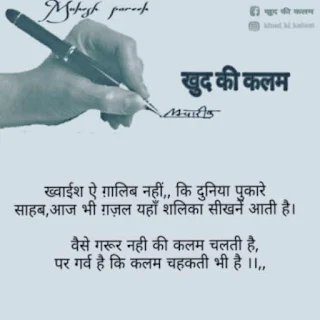 Mukesh pareek
खुद की कलम
khud_ki_kalam
खुद की कलम
ख्वाईश ऐ ग़ालिब नहीं,, कि दुनिया पुकारे
साहब,आज भी ग़ज़ल यहाँ शलिका सीखने आती है।
वैसे गरूर नही की कलम चलती है,
पर गर्व है कि कलम चहकती भी है ।।,,